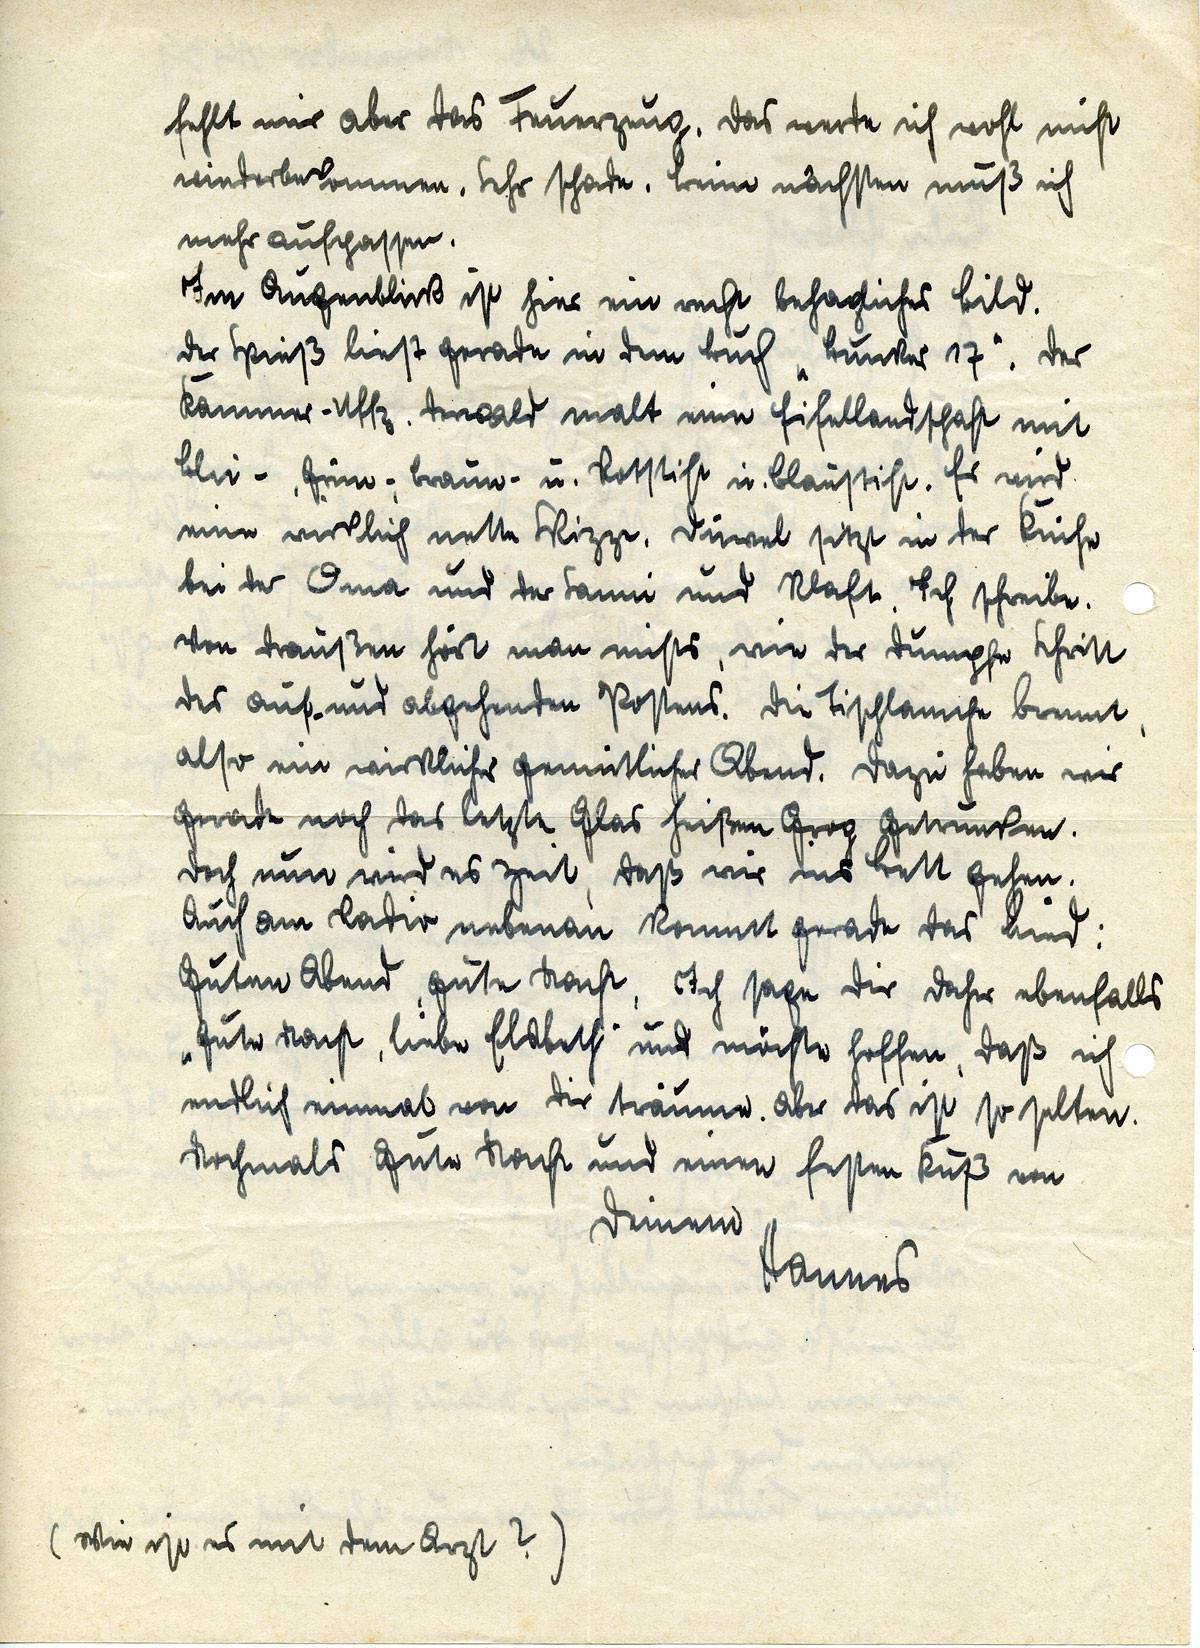 fehlt mir aber das Feuerzeug. Das werde ich wohl nicht
wiederbekommen. Sehr schade. Beim nächsten muß ich
mehr aufpassen.
Im Augenblick ist hier ein recht behagliches Bild.
Der Spieß liest gerade in dem Buch „Bunker 17". Der
Kammer-Uffz. malt eine Eifellandschaft mit
Blei-, Grün-, Braun- u. Rotstift u. Blaustift. Es wird
eine wirklich nette Skizze. Düwel sitzt in der Küche
bei der Oma und der Sanni und Klaft. Ich schreibe.
Von draußen hört man nichts, wie der dumpfe Schritt
des auf- und abgehenden Postens. Die Tischlampe brennt,
also ein wirklicher gemütlicher Abend. Dazu haben wir
gerade noch das letzte Glas heißen Grog getrunken.
Doch nun wird es Zeit, daß wir ins Bett gehen.
Auch am Radio nebenan kommt gerade das Lied:
Guten Abend, gute Nacht, Ich sage Dir daher ebenfalls
„Gute Nacht, liebe Elsbeth" und möchte hoffen, daß ich
endlich einmal von Dir träume. Aber das ist so selten.
Nochmals Gute Nacht und einen festen Kuß von
Deinem
Hannes
(Wie ist es mit dem Arzt?)